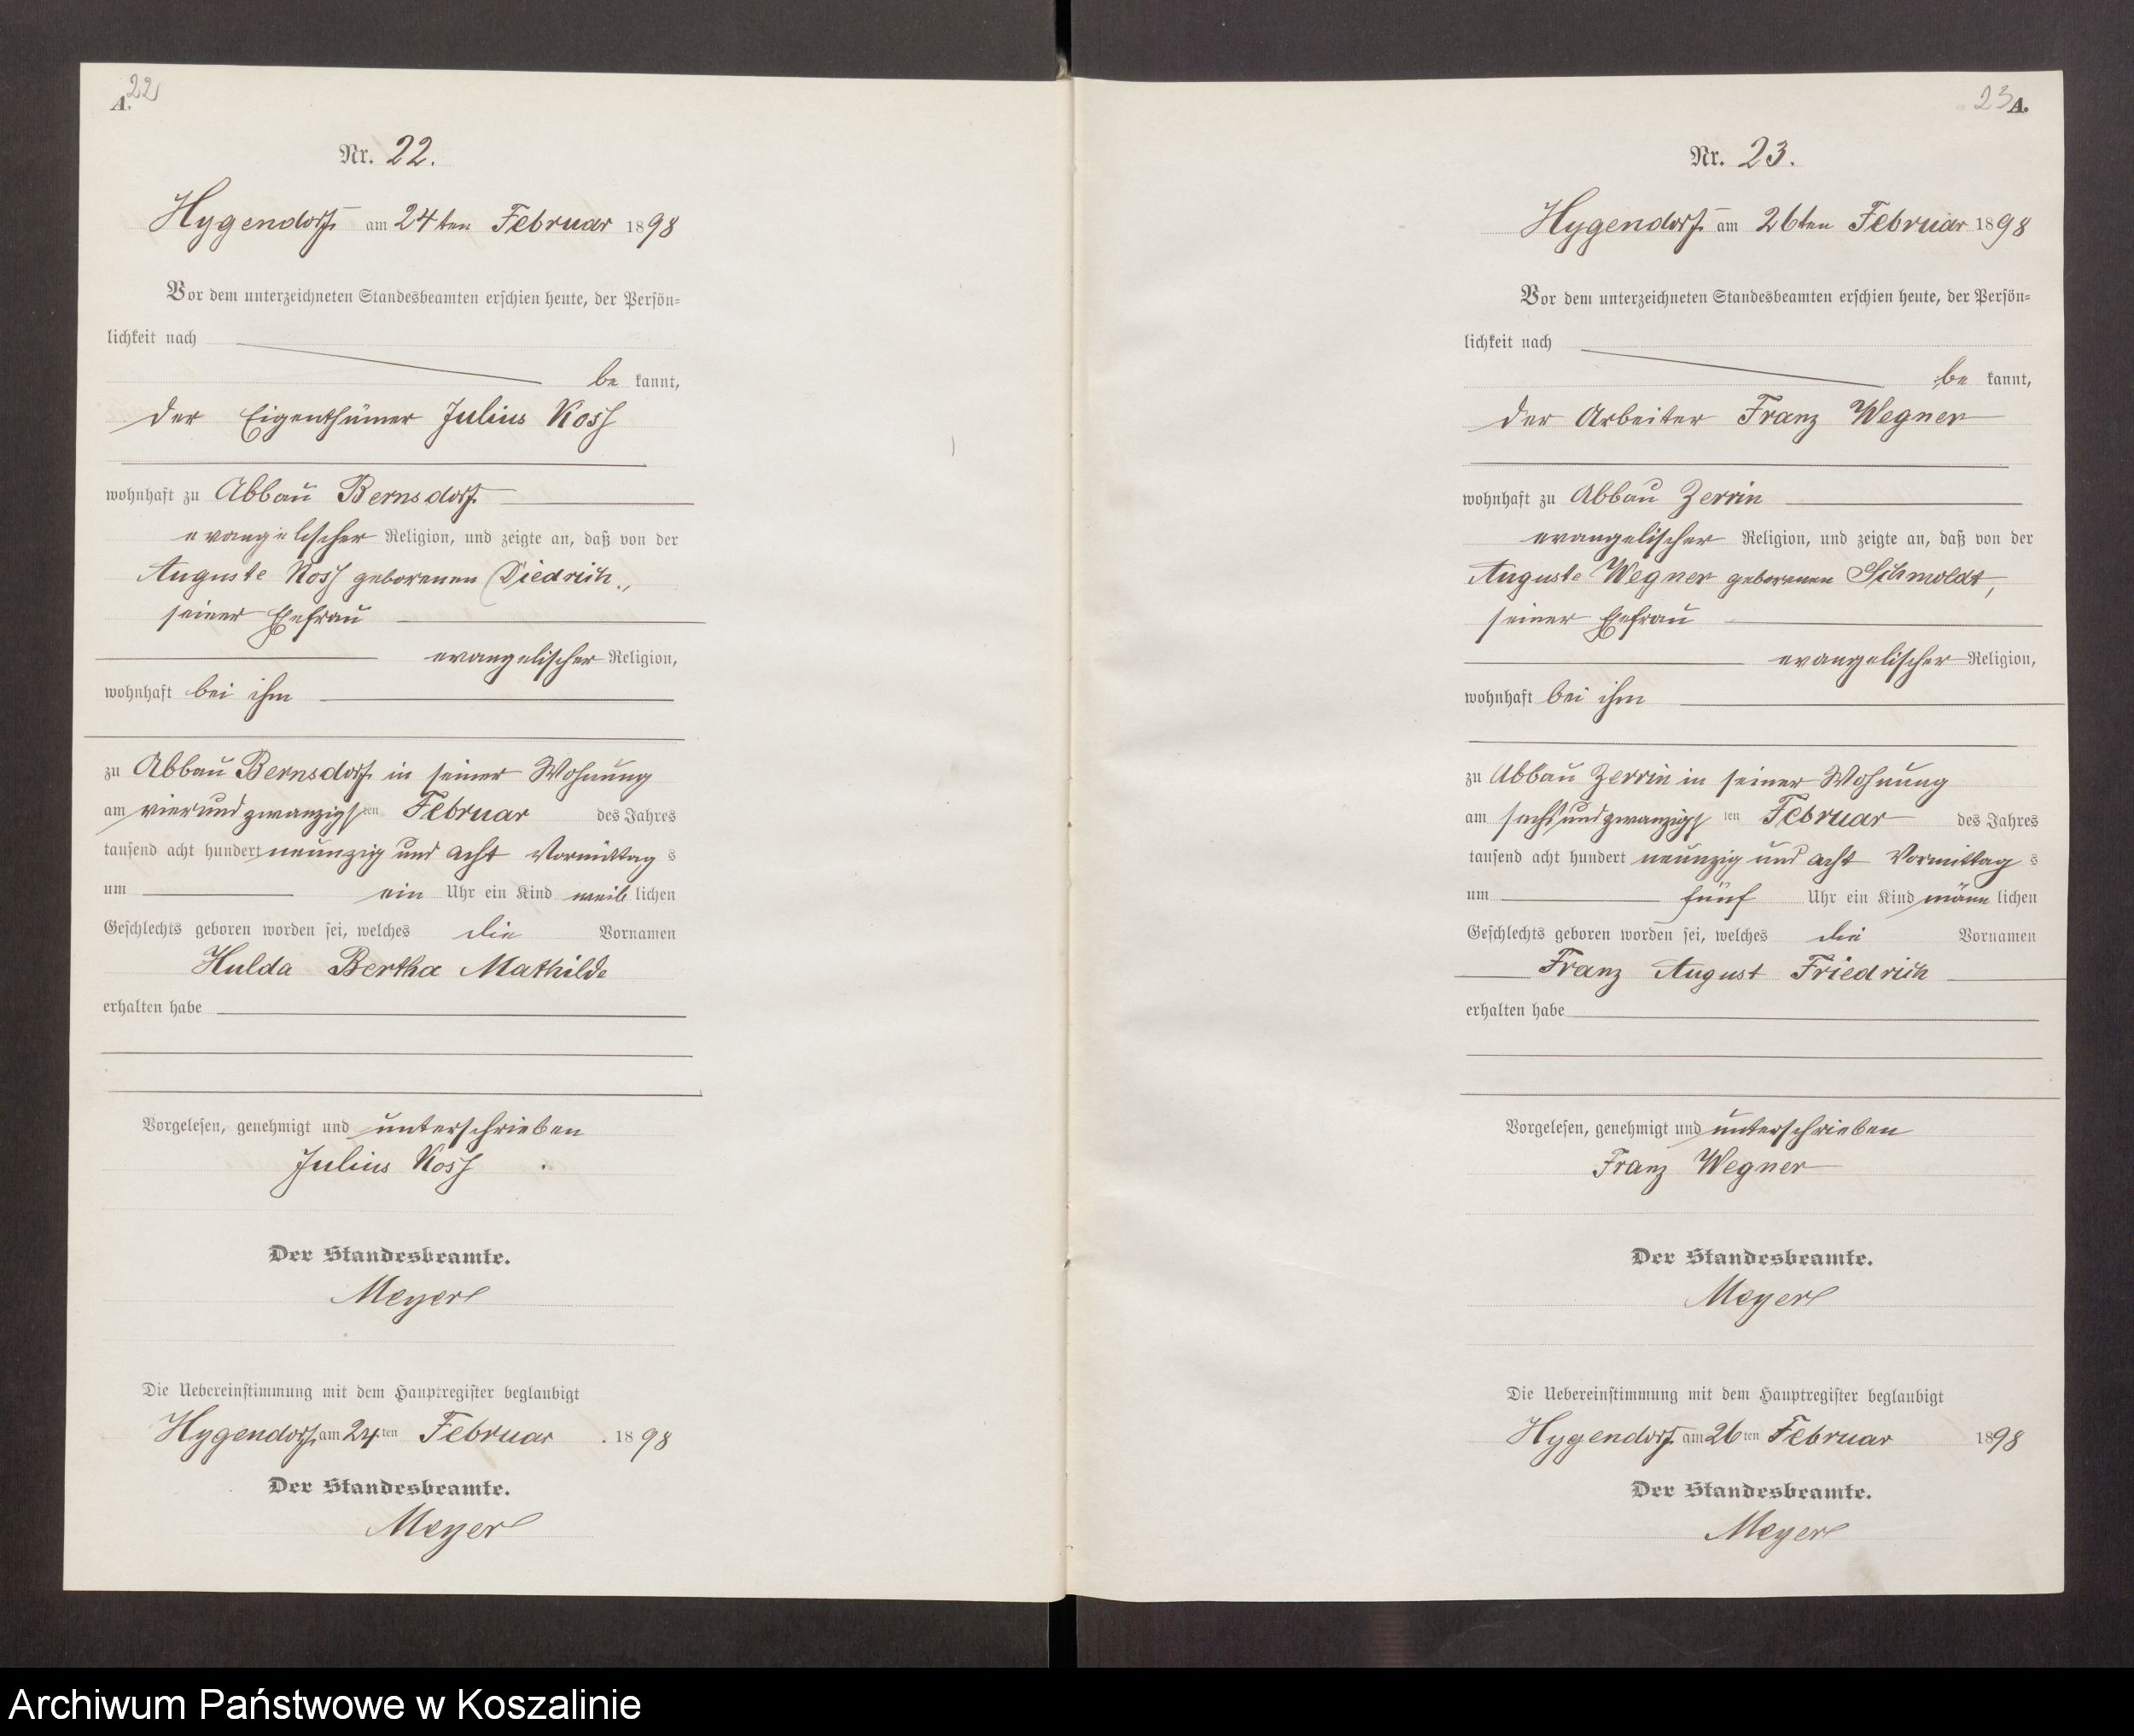 22
A.
Nr. 22.
Hygendorf am 24ten Februar 1898
Vor dem unterzeichneten Standesbeamten erschien heute, der Persön-
lichkeit nach
be kannt,
der Eigenthümer Julius Koss
wohnhaft zu Abbau Bernsdorf
evangelischer Religion, und zeigte an, daß von der
Auguste Koss geborenen Diedrich,
seiner Ehefrau
evangelischer Religion,
wohnhaft bei ihm
zu Abbau Bernsdorf in seiner Wohnung
am vierundzwanzigsten Februar des Jahres
tausend acht hundert neunzig und acht Vormittags
um ein Uhr ein Kind weiblichen
Geschlechts geboren worden sei, welches die Vornamen
Hulda Bertha Mathilde
erhalten habe
Vorgelesen, genehmigt und unterschrieben
Julius Koss
Der Standesbeamte.
Meyer
Die Uebereinstimmung mit dem Hauptregister beglaubigt
Hygendorf am 24.ten Februar 1898
Der Standesbeamte.
Meyer
23 A.
Nr. 23.
Hygendorf am 26ten Februar 1898
Vor dem unterzeichneten Standesbeamten erschien heute, der Persön-
lichkeit nach
be kannt,
der Arbeiter Franz Wegner
wohnhaft zu Abbau Zerrin
evangelischer Religion, und zeigte an, daß von der
Auguste Wegner geborenen Schmoldt,
seiner Ehefrau
evangelischer Religion,
wohnhaft bei ihm
zu Abbau Zerrin in seiner Wohnung
am sechsundzwanzigsten Februar des Jahres
tausend acht hundert neunzig und acht Vormittags
um fünf Uhr ein Kind männlichen
Geschlechts geboren worden sei, welches die Vornamen
Franz August Friedrich
erhalten habe
Vorgelesen, genehmigt und unterschrieben
Franz Wegner
Der Standesbeamte.
Meyer
Die Uebereinstimmung mit dem Hauptregister beglaubigt
Hygendorf am 26ten Februar 1898
Der Standesbeamte.
Meyer
Archiwum Państwowe w Koszalinie